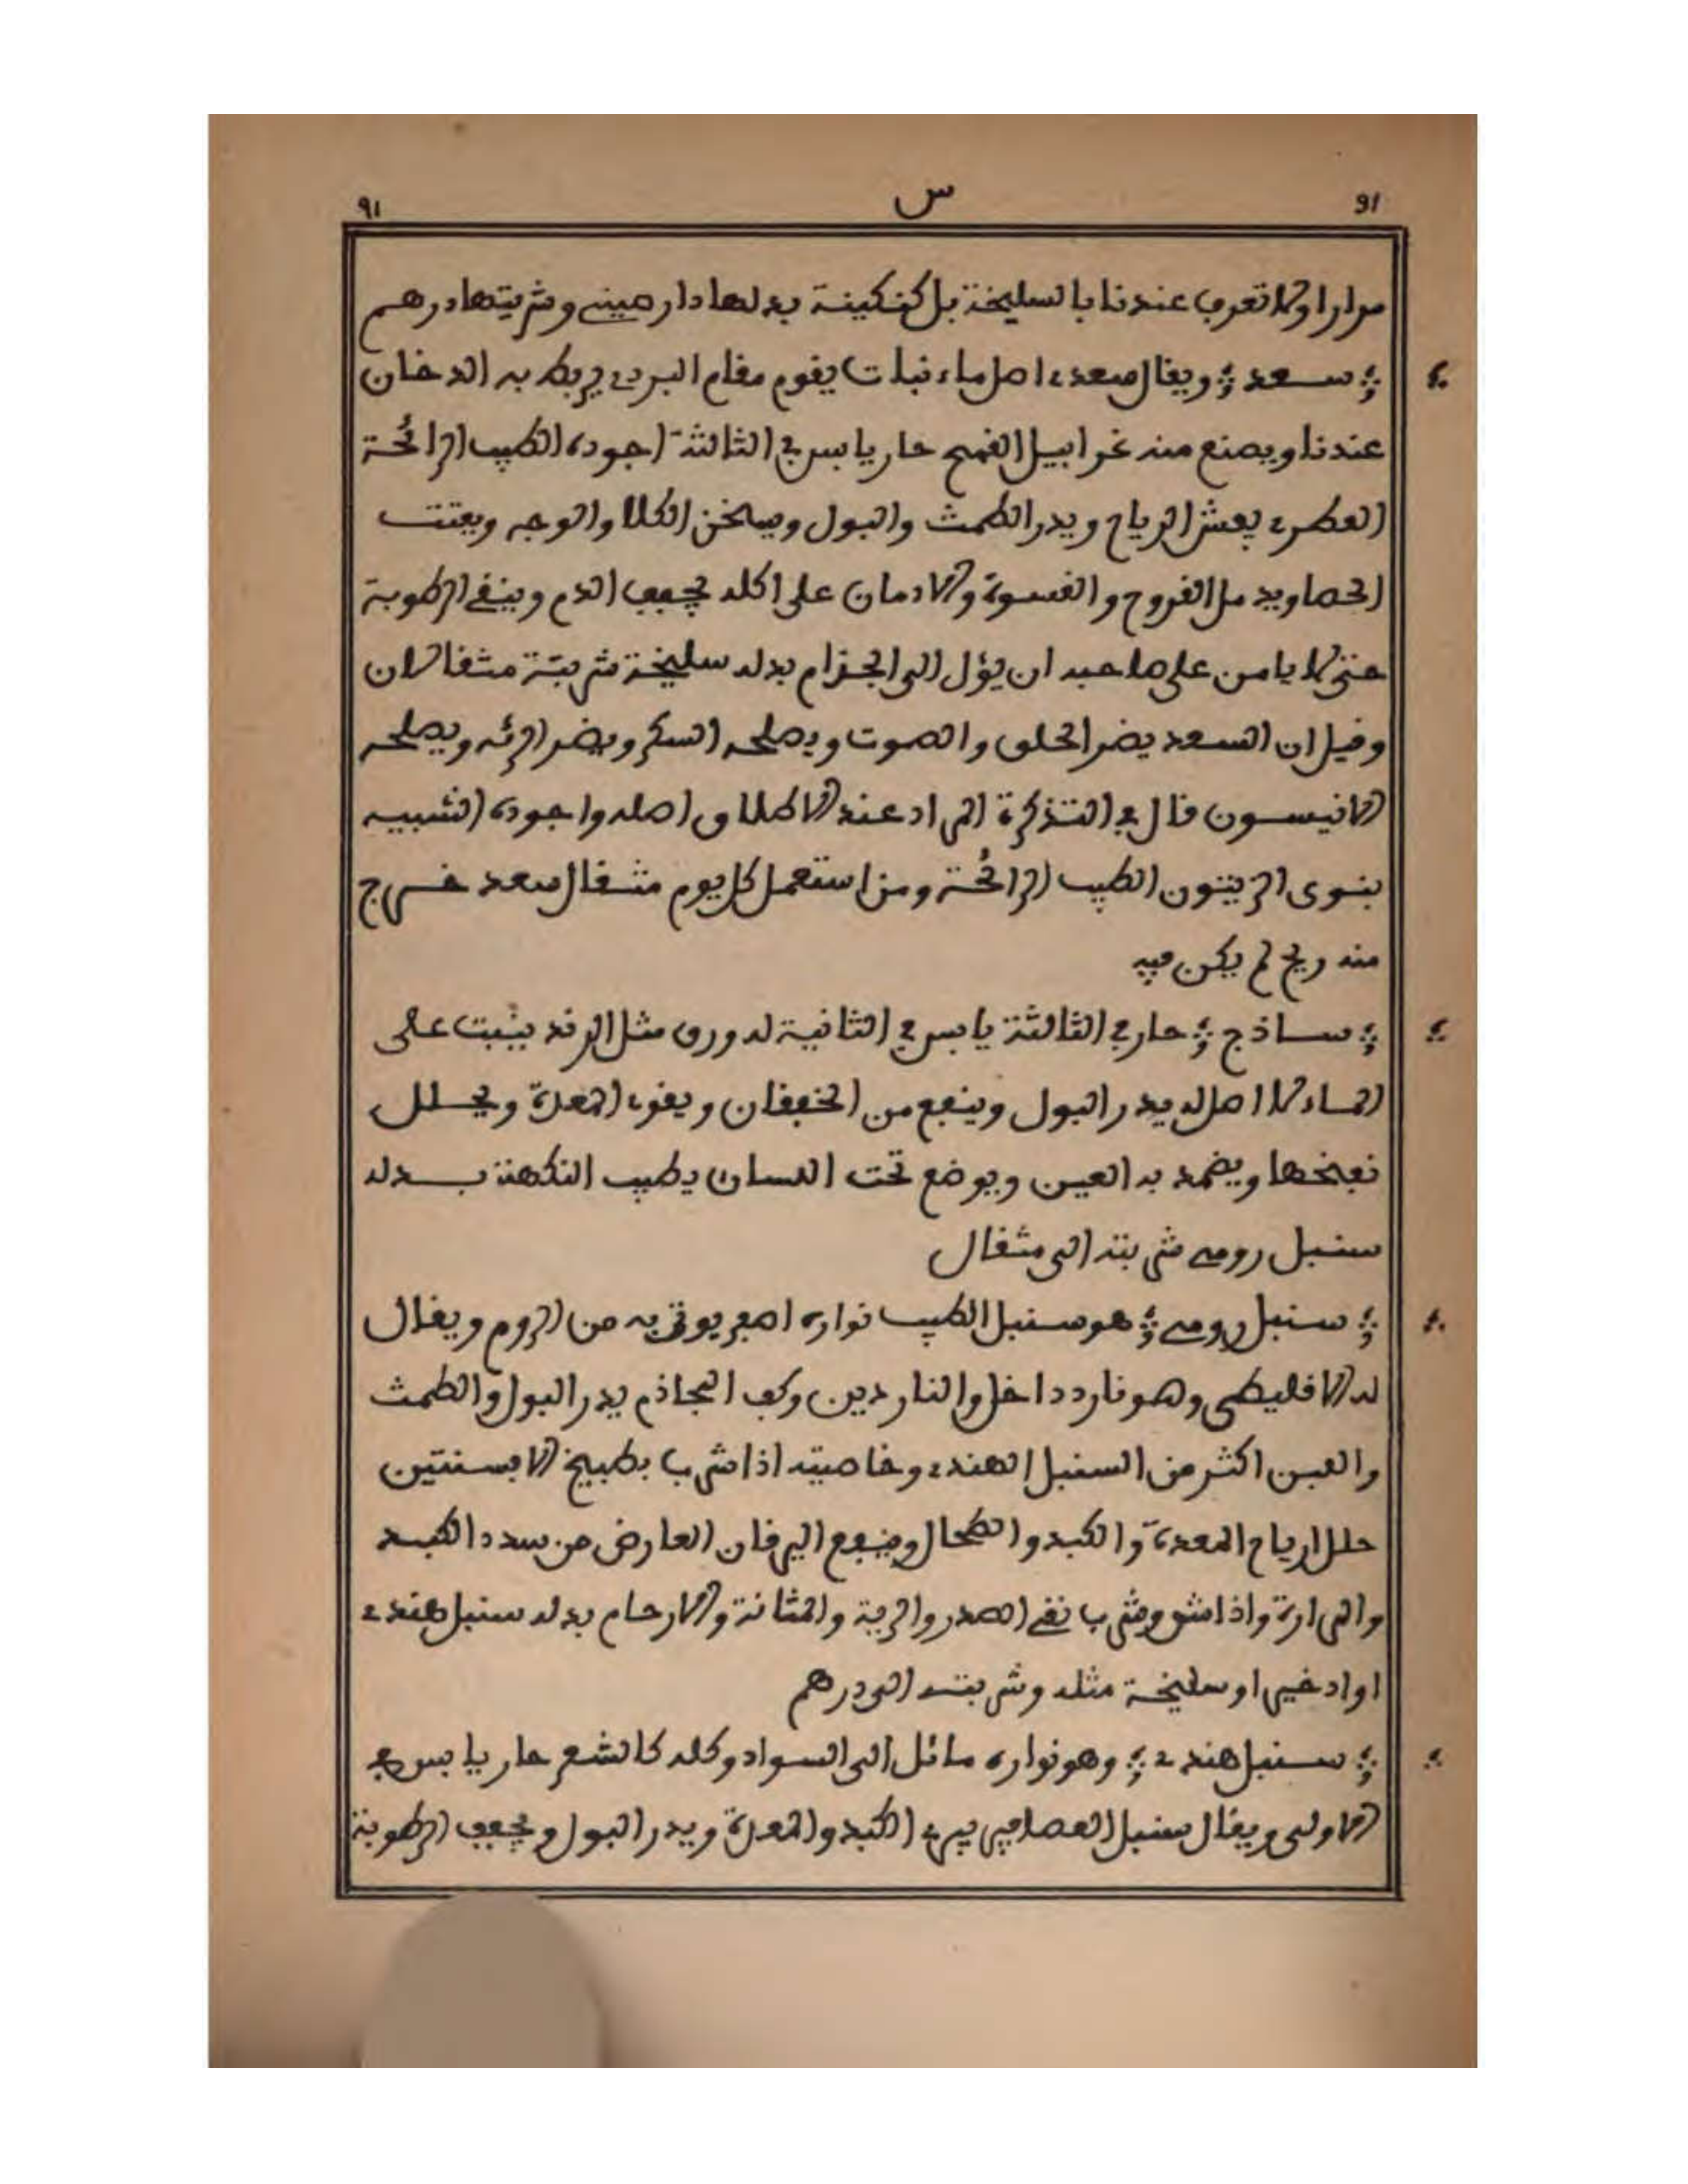 91 س ٩١
مرارا ولا تعرف عندنا بالسليخة بل كنكينة بدلها دار صيني وشربتها درهم
سعد ويقال سعدى اصل ماء نبات يقوم مقام البردي يربط به الدخان
عندنا ويصنع منه غرابيل القمح حار يابس في الثالثة اجوده الطيب الرائحة
العطري يفش الرياح ويدر الطمث والبول ويسخن الكلا والوجه ويفتت
الحصا ويدمل القروح والقسوة والادمان على اكله يجفف الدم وينفي الرطوبة
حتى لا يامن على صاحبه ان يؤل الى الجزام بدله سليخة شربتة مثقالان
وقيل ان السعد يضر الحلق والصوت ويصلحه السكر ويضر الرئه ويصلحه
الانيسون قال في التذكرة المراد عند الاطلاق اصله واجوده الشبيه
بنوى الزيتون الطيب الرائحة ومن استعمل كل يوم مثقال سعد خرج
منه ريح لم يكن فيه
ساذج حار في الثالثة يابس في الثانية له ورق مثل الرند ينبت على
الماء لا اصل له يدر البول وينفع من الخفقان ويقوى المعدة ويحلل
نفخها ويضمد به العين ويوضع تحت اللسان يطيب النكهة بدله
سنبل رومي شربته الى مثقال
سنبل رومي هو سنبل الطيب نواره اصفر يوتى به من الروم ويقال
له الاقليطى وهو نارد داخل والناردين وكف الجاذم يدر البول والطمث
والعين اكثر من السنبل الهندى وخاصيته اذا شرب بطبيخ الافسنتين
حلل ارياح المعدة والكبد والطحال وينفع اليرقان العارض من سدد الكبد
والمرارة واذا وشرب نقى الصدر والرية والمثانة والارحام بدله سنبل هندى
او ادخير او سليخة مثله وشربته الى درهم
سنبل هندى وهو نواره مائل الى السواد وكله كالشعر حار يابس في
الاولى ويقال سنبل العصافير يبرئ الكبد والمعدة ويدر البول ويجفف الرطوبة